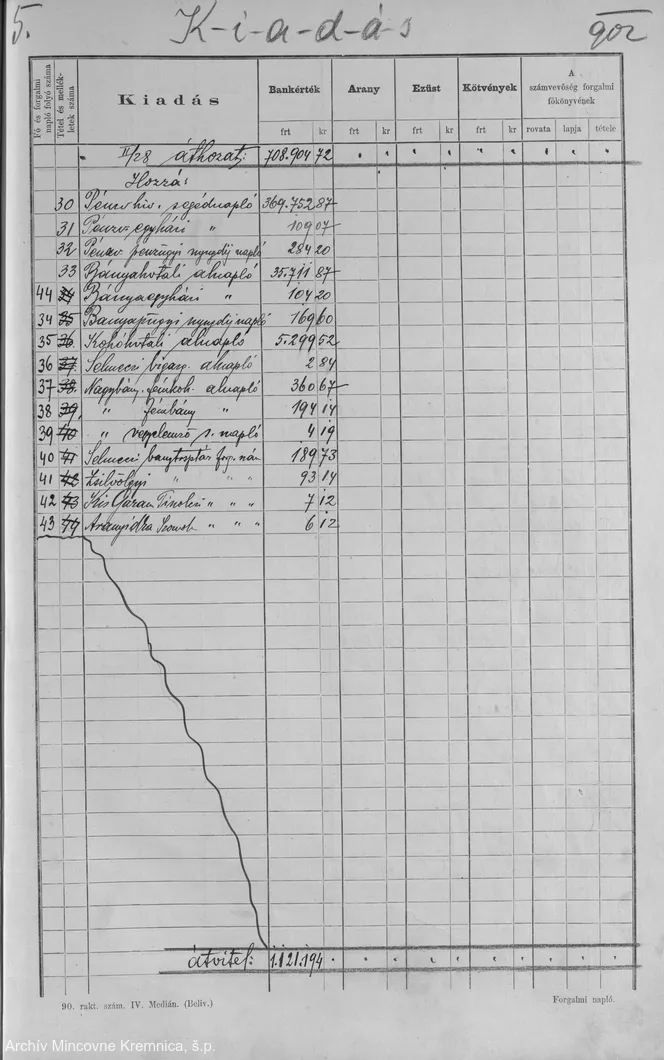 5. K-i-a-d-á-s 902
Fő és forgalmi napló folyó száma
Tétel és mellékletek száma
Kiadás
Bankérték Arany Ezüst Kötvények
A számvevőség forgalmi főkönyvének
frt kr frt kr frt kr frt kr rovata lapja tétele
II/28 áthozat: 708.904 72
Hozzá:
30 Pénzvhiv. segédnapló 369.752 87
31 Pénzv. egyházi " 109 07
32 Pénzv. pénzügyi nyugdíj napló 284 20
33 Bányahivatali alnapló 35.711 87
44 34 Bányaegyházi " 104 20
34 35 Bányapügyi nyugdíj napló 169 60
35 36 Kohóhivatali alnapló 5.299 52
36 37 Selmeczi bigazg. alnapló 2 84
37 38 Nagybány. fémkoh. alnapló 360 67
38 39 " fémbány " 194 14
39 40 " s. napló 4 19
40 41 Selmeczi 189 73
41 42 " " " 93 14
42 43 Kis Garam Tiszolcz " " " 7 12
43 44 Aranyidka " " " 6 12
átvitel: 1.121.194
90. rakt. szám. IV. Medián. (Beliv.) Forgalmi napló.
Archív Mincovne Kremnica, š.p.